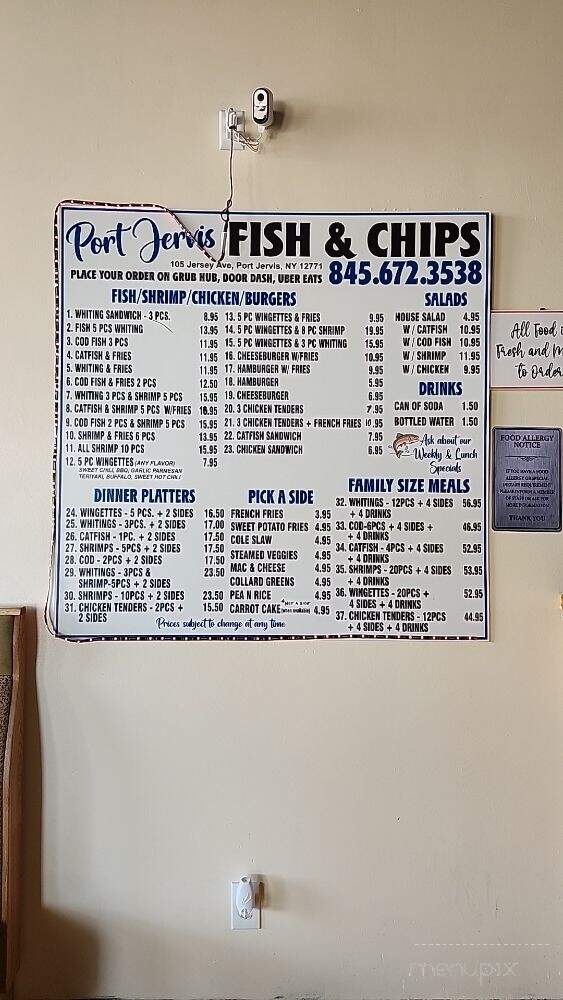 Port Jervis FISH & CHIPS
105 Jersey Ave, Port Jervis, NY 12771
PLACE YOUR ORDER ON GRUB HUB, DOOR DASH, UBER EATS 845.672.3538
FISH/SHRIMP/CHICKEN/BURGERS
1. WHITING SANDWICH - 3 PCS. 8.95
2. FISH 5 PCS WHITING 13.95
3. COD FISH 3 PCS 11.95
4. CATFISH & FRIES 11.95
5. WHITING & FRIES 11.95
6. COD FISH & FRIES 2 PCS 12.50
7. WHITING 3 PCS & SHRIMP 5 PCS 15.95
8. CATFISH & SHRIMP 5 PCS W/FRIES 16.95
9. COD FISH 2 PCS & SHRIMP 5 PCS 15.95
10. SHRIMP & FRIES 6 PCS 13.95
11. ALL SHRIMP 10 PCS 15.95
12. 5 PC WINGETTES (ANY FLAVOR) 7.95
SWEET CHILI, BBQ, GARLIC PARMESAN
TERIYAKI, BUFFALO, SWEET HOT CHILI
13. 5 PC WINGETTES & FRIES 9.95
14. 5 PC WINGETTES & 8 PC SHRIMP 19.95
15. 5 PC WINGETTES & 3 PC WHITING 15.95
16. CHEESEBURGER W/FRIES 10.95
17. HAMBURGER W/ FRIES 9.95
18. HAMBURGER 5.95
19. CHEESEBURGER 6.95
20. 3 CHICKEN TENDERS 7.95
21. 3 CHICKEN TENDERS + FRENCH FRIES 10.95
22. CATFISH SANDWICH 7.95
23. CHICKEN SANDWICH 6.95
SALADS
HOUSE SALAD 4.95
W/ CATFISH 10.95
W/ COD FISH 10.95
W/ SHRIMP 11.95
W/ CHICKEN 9.95
DRINKS
CAN OF SODA 1.50
BOTTLED WATER 1.50
Ask about our
Weekly & Lunch
Specials
DINNER PLATTERS
24. WINGETTES - 5 PCS. + 2 SIDES 16.50
25. WHITINGS - 3PCS. + 2 SIDES 17.00
26. CATFISH - 1PC. + 2 SIDES 17.50
27. SHRIMPS - 5PCS + 2 SIDES 17.50
28. COD - 2PCS + 2 SIDES 17.50
29. WHITINGS - 3PCS & 23.50
SHRIMP-5PCS + 2 SIDES
30. SHRIMPS - 10PCS + 2 SIDES 23.50
31. CHICKEN TENDERS - 2PCS + 15.50
2 SIDES
PICK A SIDE
FRENCH FRIES 3.95
SWEET POTATO FRIES 4.95
COLE SLAW 4.95
STEAMED VEGGIES 4.95
MAC & CHEESE 4.95
COLLARD GREENS 4.95
PEA N RICE 4.95
*NOT A SIDE
CARROT CAKE (when available) 4.95
FAMILY SIZE MEALS
32. WHITINGS - 12PCS + 4 SIDES 56.95
+ 4 DRINKS
33. COD-6PCS + 4 SIDES + 46.95
+ 4 DRINKS
34. CATFISH - 4PCS + 4 SIDES 52.95
+ 4 DRINKS
35. SHRIMPS - 20PCS + 4 SIDES 53.95
+ 4 DRINKS
36. WINGETTES - 20PCS + 52.95
4 SIDES + 4 DRINKS
37. CHICKEN TENDERS - 12PCS 44.95
+ 4 SIDES + 4 DRINKS
Prices subject to change at any time
All Food i
Fresh and M
to Order
FOOD ALLERGY
NOTICE
IF YOU HAVE A FOOD
ALLERGY OR SPECIAL
DIETARY REQUIREMENT
PLEASE INFORM A MEMBER
OF STAFF OR ASK FOR
MORE INFORMATION
THANK YOU
menupix